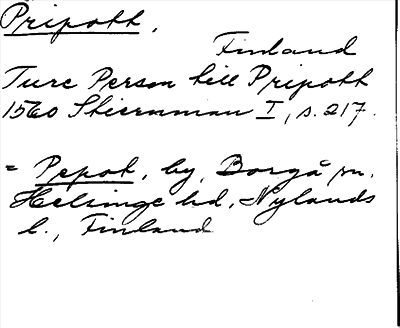 Pripott.
Finland
Ture Person till Pripott
1560 Stiernman I, s. 217.
= Pepot, by, Borgå sn.
Helsinge hd, Nylands
l., Finland